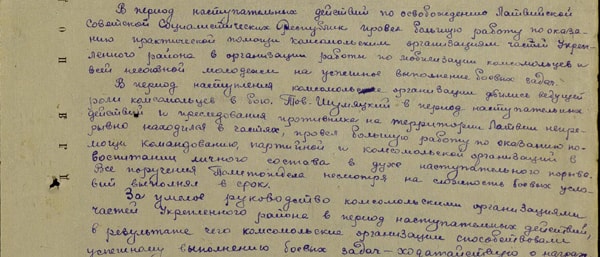 В период наступательных действий по освобождению Латвийской
Советской Социалистических Республик провел большую работу по оказа-
нию практической помощи комсомольским организациям частей Укреп-
ленного района в организации работы по мобилизации комсомольцев и
всей несоюзной молодежи на успешное выполнение боевых задач.
В период наступления комсомольские организации явились ведущей
роли комсомольцев в бою. Тов. Шумяцкий в период наступательных
действий и преследования противника на территории Латвии непре-
рывно находился в частях, провел большую работу по оказанию по-
мощи командованию, партийной и комсомольской организаций в
воспитании личного состава в духе наступательного порыва.
Все поручения Политотдела несмотря на сложность боевых усло-
вий выполнял в срок.
За умелое руководство комсомольскими организациями
частей Укрепленного района в период наступательных действий,
в результате чего комсомольские организации способствовали
успешному выполнению боевых задач - ходатайствую о награж